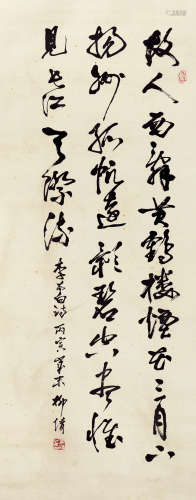 故人西辭黃鶴樓煙花三月下
揚州孤帆遠影碧空盡惟
見長江天際流
李白詩 丙寅歲末 柳倩